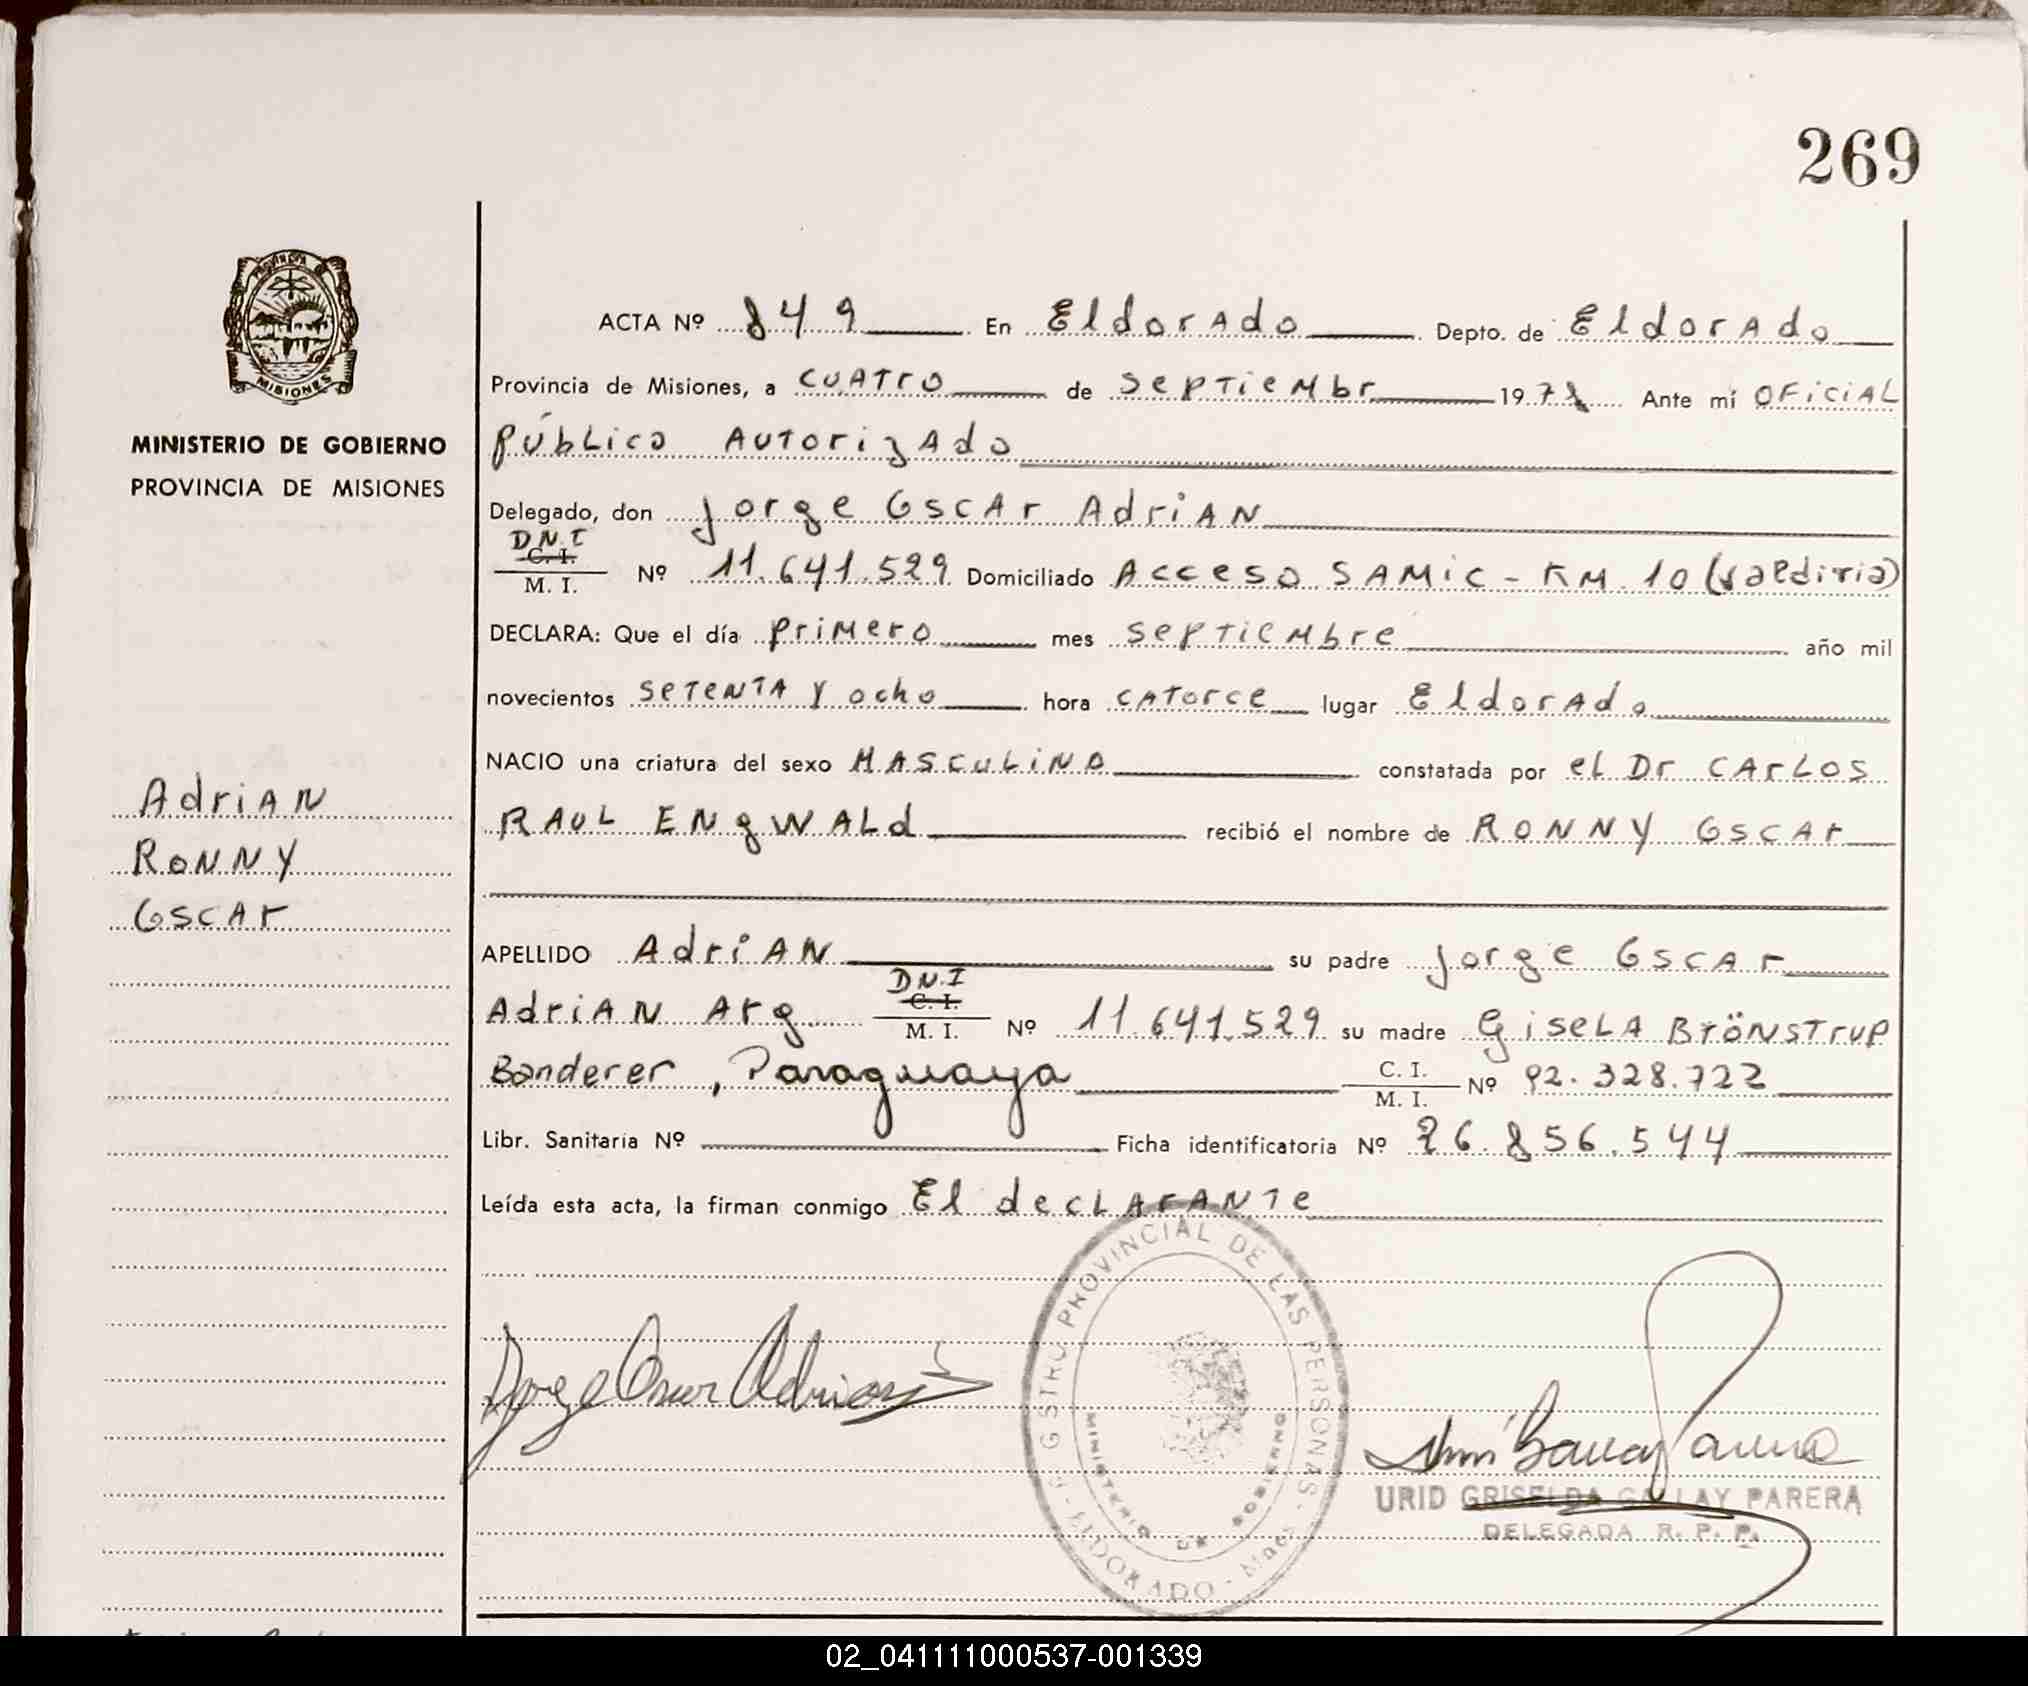 269
PROVINCIA DE
MISIONES
MINISTERIO DE GOBIERNO
PROVINCIA DE MISIONES
Adrian
Ronny
Oscar
ACTA Nº 849 En Eldorado Depto. de Eldorado
Provincia de Misiones, a cuatro de septiembr 1978 Ante mí Oficial
Público Autorizado
Delegado, don Jorge Oscar Adrian
D.N.I
C. I.
M. I. Nº 11.641.529 Domiciliado Acceso SAMIC - KM. 10
DECLARA: Que el día primero mes septiembre año mil
novecientos setenta y ocho hora catorce lugar Eldorado
NACIO una criatura del sexo Masculino constatada por el Dr Carlos
Raul Engwald recibió el nombre de Ronny Oscar
APELLIDO Adrian su padre Jorge Oscar
D.N.I
Adrian Arg. C. I.
M. I. Nº 11.641.529 su madre Gisela Brönstrup
Banderer, Paraguaya C. I.
M. I. Nº 92.328.722
Libr. Sanitaria Nº Ficha identificatoria Nº 26.856.544
Leída esta acta, la firman conmigo El declarante
Jorge Oscar Adrian
REGISTRO PROVINCIAL DE LAS PERSONAS - ELDORADO - Mnes
MINISTERIO DE GOBIERNO
URID GRISELDA GALLAY PARERA
DELEGADA R. P. P.
02_041111000537-001339